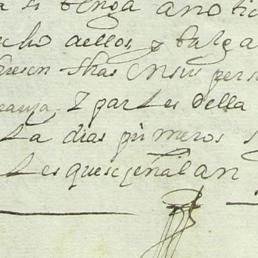 a si tenga a noti
cho aellos, y salga
 en sus pers
anza. Y partes della
ta dias primeros s
les que se señalan